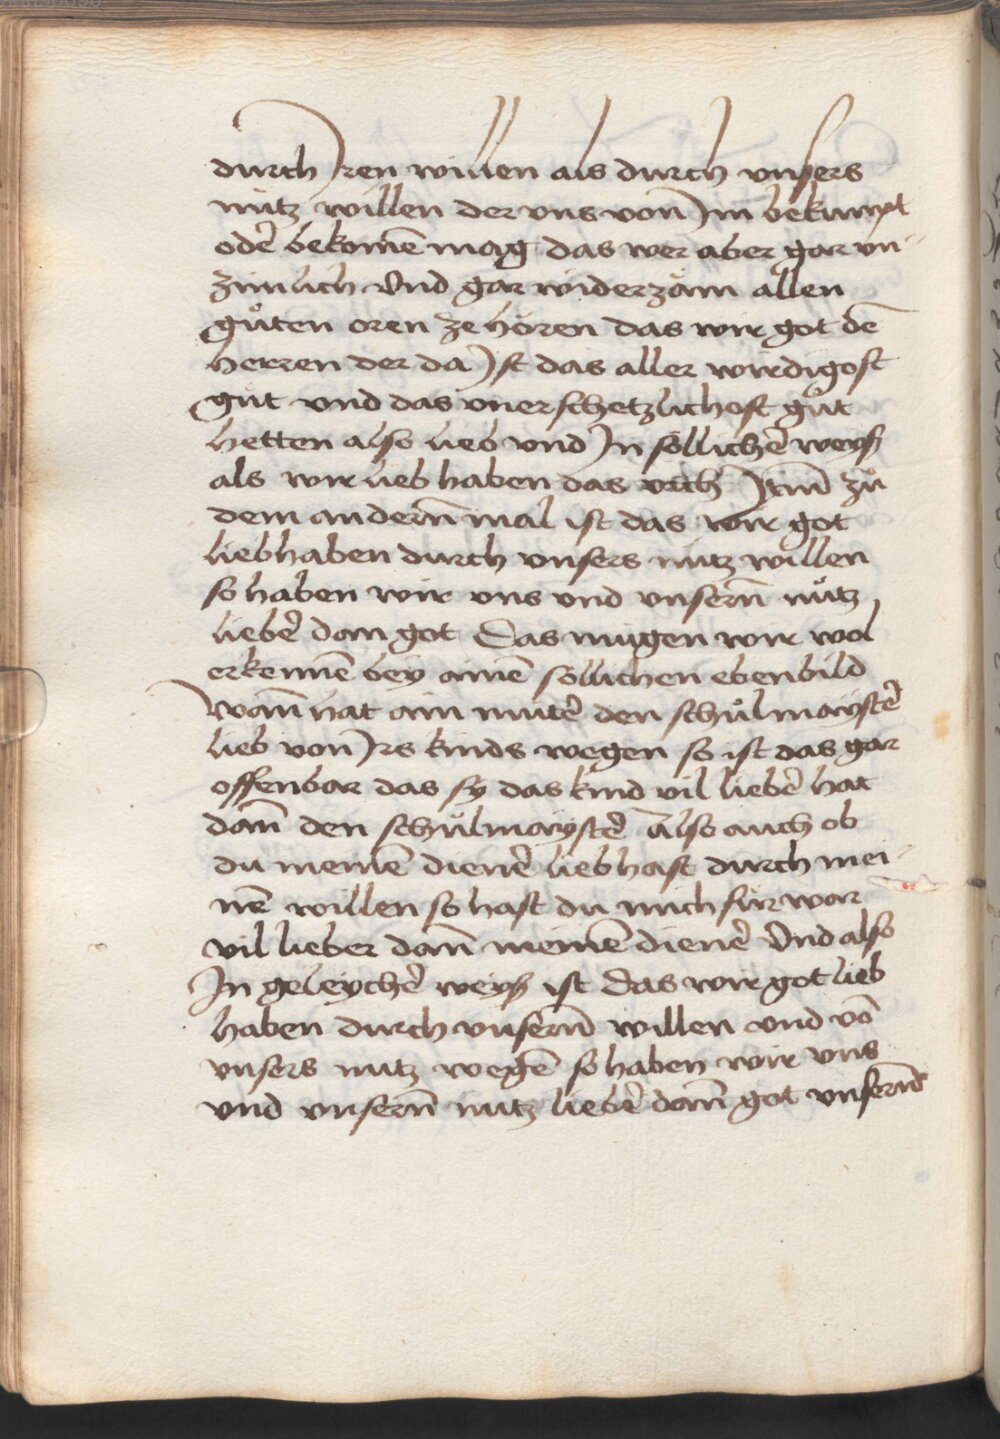 durch Iren willen als durch vnsers
nutz willen der vns von Im bekumpt
odē bekomē mag das wer aber gar vn-
zimlich Vnd gar widerzåm allen
gůten oren ze hören das wir got dē
herren der da Ist das aller wirdigost
gůt vnd das vnerschetzlichost gůt
hetten also lieb vnd In söllichē weyß
als wir lieb haben das vich Itm̄ zů
dem andern̄ mal ist das wir got
liebhaben durch vnsers nutz willen
so haben wir vns vnd vnsern̄ nůtz
liebē dan got Das mügen wir wol
erkennē bey ainē söllichen ebenbild
Wan̄ hat ain mutē den schůlmaystē
lieb von Irs kinds wegen so ist das gar
offenbar das sy das kind vil liebē hat
dan̄ den schůlmaystē Also auch ob
du meinē dienē liebhast durch mei-
nē willen so hast du mich für war
vil lieber dan̄ meinē dienē Vnd also
In geleychē weyß ist Das wir got lieb
haben durch vnsern̄ willen vnd vō
vnsers nutz wegē so haben wir vns
vnd vnsern̄ nutz liebē dan̄ got vnsern̄